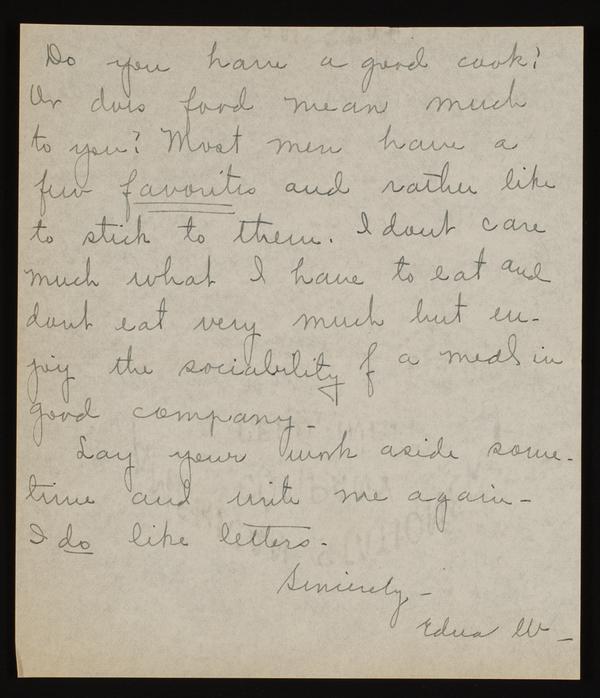 Do you have a good cook?
Or does food mean much
to you? Most men have a
few favorites and rather like
to stick to them. I dont care
much what I have to eat and
dont eat very much but en-
joy the sociability of a meal in
good company -
Lay your work aside some-
time and write me again -
I do like letters -
Sincerely -
Edna W -